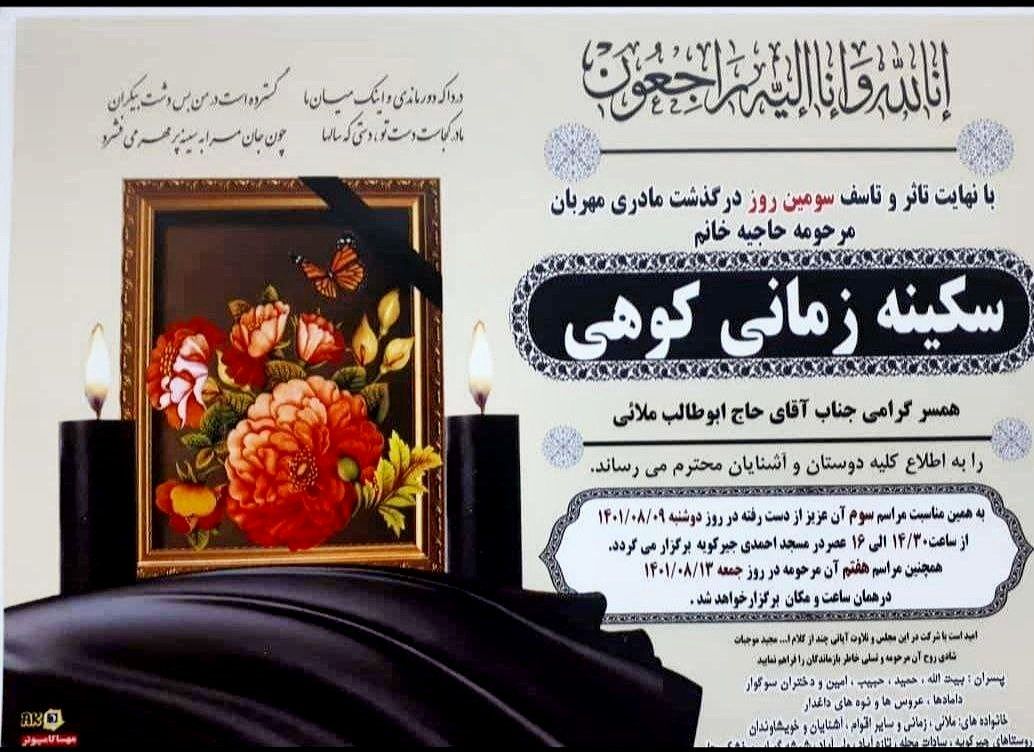 انا لله و انا الیه راجعون
دردا که دور ماندی و اینک میان ما گسترده است در من بس دشت بیکران
مادر کجاست دست تو، دستی که سالها چون جان مرا به سینه پر مهر می فشرد
با نهایت تاثر و تاسف سومین روز درگذشت مادری مهربان
مرحومه حاجیه خانم
سکینه زمانی کوهی
همسر گرامی جناب آقای حاج ابوطالب ملائی
را به اطلاع کلیه دوستان و آشنایان محترم می رساند.
به همین مناسبت مراسم سوم آن عزیز از دست رفته در روز دوشنبه ۱۴۰۱/۰۸/۰۹
از ساعت ۱۴/۳۰ الی ۱۶ عصر در مسجد احمدی جیرکویه برگزار می گردد.
همچنین مراسم هفتم آن مرحومه در روز جمعه ۱۴۰۱/۰۸/۱۳
درهمان ساعت و مکان برگزار خواهد شد .
امید است با شرکت در این مجلس و تلاوت آیاتی چند از کلام ا... مجید موجبات
شادی روح آن مرحومه و تسلی خاطر بازماندگان را فراهم نمایید
پسران : بیت الله ، حمید ، حبیب ، امین و دختران سوگوار
دامادها ، عروس ها و نوه های داغدار
خانواده های: ملائی ، زمانی و سایر اقوام ، آشنایان و خویشاوندان
روستاهای جیرکویه ، سادات محله
AK
مهسا کامپیوتر